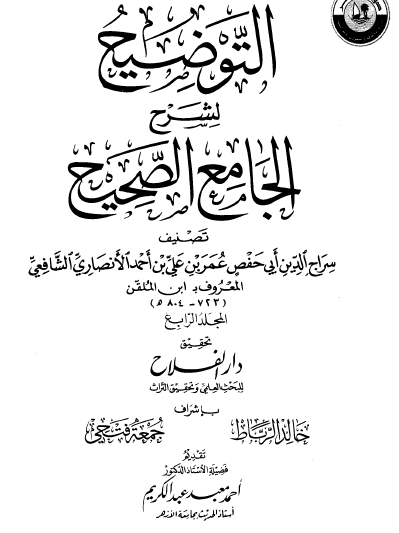 التَّوضِيحُ
لشرح
الجَامِعِ الصَّحِيحِ
تصنيف
سراج الدين أبي حفص عمر بن علي بن أحمد الأنصاري الشافعي
المعروف بـ ابن الملقن
(٧٢٣ - ٨٠٤ هـ)
المجلد الرابع
تحقيق
دار الفلاح
للبحث العلمي وتحقيق التراث
بإشراف
خالد الرباط جمعة فتحي
تقديم
فضيلة الأستاذ الدكتور
أحمد معبد عبد الكريم
أستاذ الحديث بجامعة الأزهر